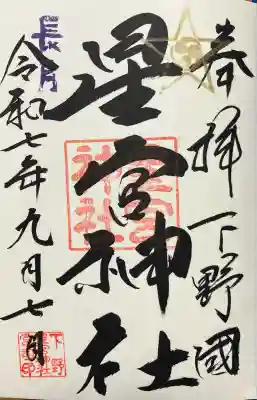 奉拝 下野國
星宮神社
長月
令和七年九月七日
星宮神社